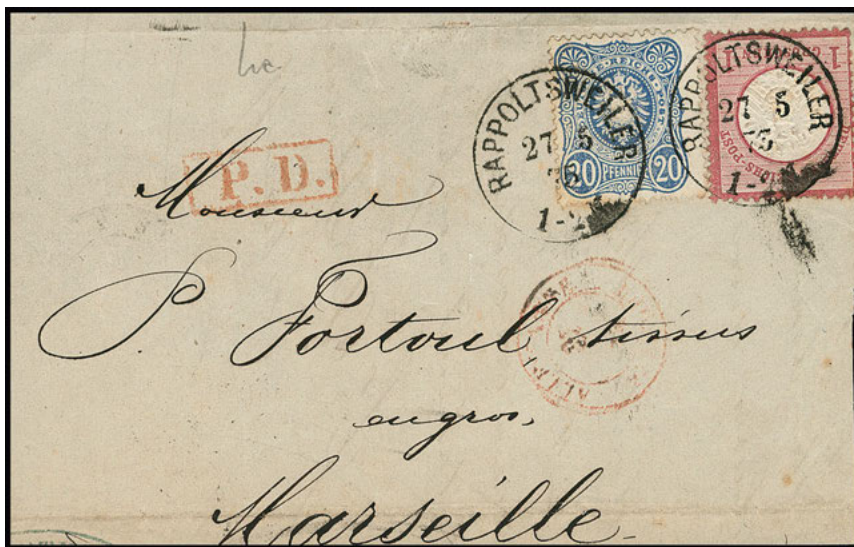 P. D.
RAPPOLTSWEILER
27 5
75
1-2
20 PFENNIG 20
RAPPOLTSWEILER
27 5
75
1-2
1 1
Monsieur
P. Fortoul tissus
en gros,
Marseille.